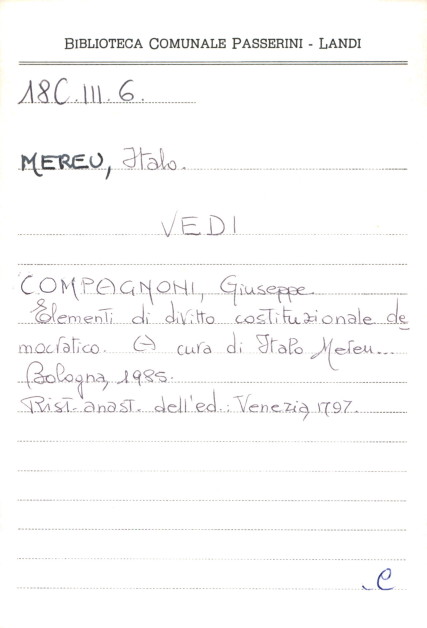 BIBLIOTECA COMUNALE PASSERINI - LANDI
18C.III.6.
MEREU, Italo.
VEDI
COMPAGNONI, Giuseppe.
Elementi di diritto costituzionale de
mocratico. A cura di Italo Mereu...
Bologna, 1985.
Rist. anast. dell'ed.: Venezia, 1797.